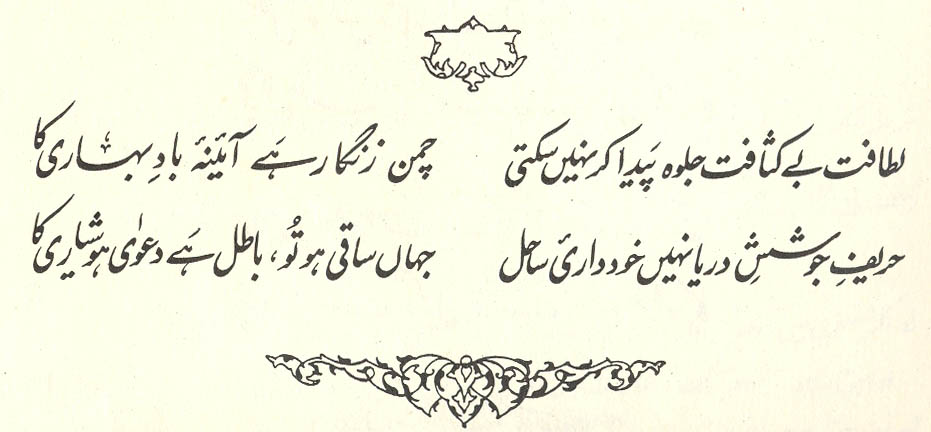 لطافت بے کثافت جلوہ پَیدا کر نہیں سکتی چمن زنگار ہَے آئینۂ بادِ بہاری کا
حریفِ جوششِ دریا نہیں خود داریٔ ساحل جہاں ساقی ہو تُو، باطل ہَے دعویٰ ہوشیاری کا